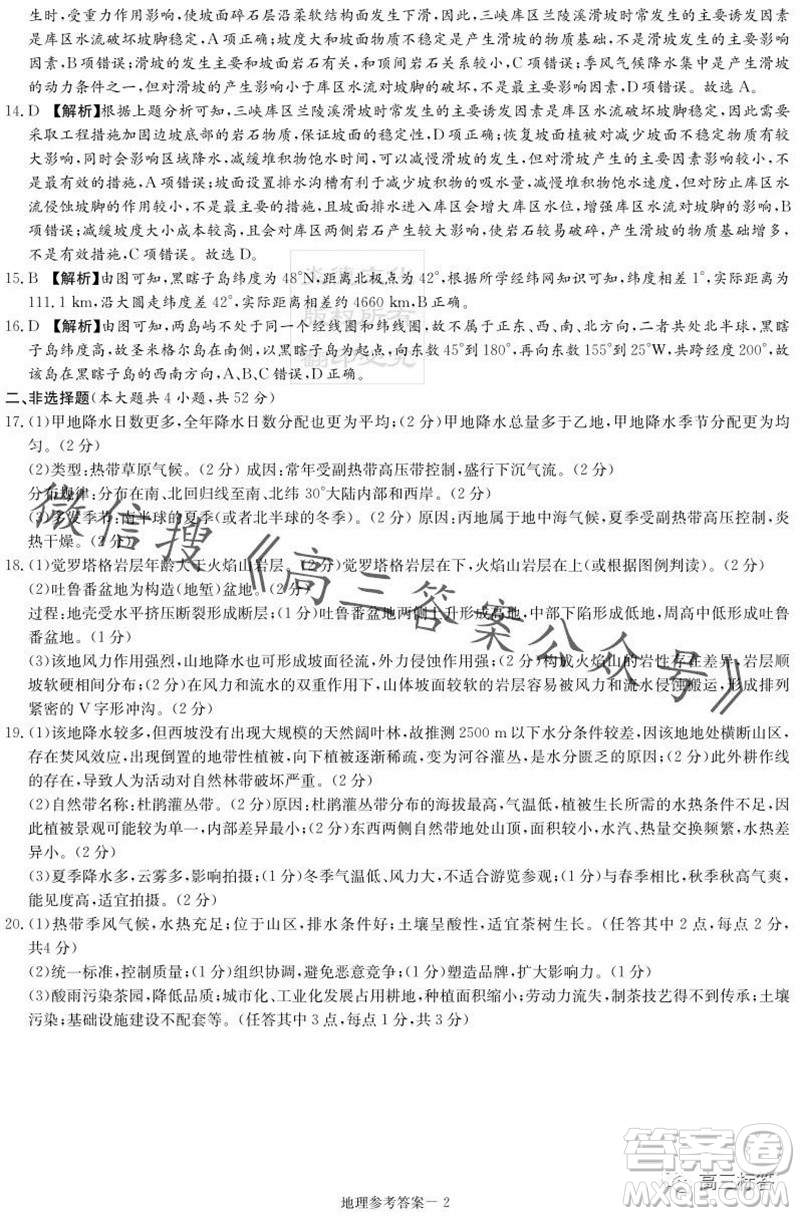 生,受重力作用影响,使坡面碎石层沿柔软结构面发生下滑,因此,三峡库区兰陵溪滑坡时常发生的主要诱发因素
是库区水流破坏坡脚稳定,A项正确;坡度大和坡面物质稳定是产生滑坡的物质基础,不是导致滑坡的主要影响
因素,B项错误;滑坡的发生和坡面岩石有关,和顶面岩石关系较小,C项错误;季风气候降水集中是产生滑坡
的动力条件之一,但对滑坡产生的影响小于库区水流对坡脚的破坏,不是主要影响因素,D项错误。故选A。
14. D 【解析】根据上题分析可知,三峡库区兰陵溪滑坡时常发生的主要诱发因素是库区水流破坏坡脚稳定,因此需要
采取工程措施加固边坡底部的岩石物质,保证坡面的稳定性,D项正确;恢复坡面植被对减少坡面下渗影响有较
大影响,同时会影响区域降水,减缓堆积物饱水时间,可以减慢滑坡的发生,但对滑坡产生的影响不是主要影响因
素的措施,A项错误;坡面设置排水沟槽有利于减少堆积物的吸水量,减缓堆积物饱水速度,但对防止库区水
流侵蚀坡脚的作用较小,不是最主要的措施,且坡面排水进入库区会增大库区水位,增强库区水流的影响,B项错
误;减缓坡度大小成本较高,且会对库区岩石产生较大影响,使岩石较易破碎,产生滑坡的物质基础增多,不是最
有效措施,C项错误。故选D。
15. B 【解析】由图可知,黑瞎子岛纬度为48°N,距离北极点为42°,根据所学经纬网知识可知,纬度相差1°,实际距离约
111.1 km,沿大圆走纬度差为42°,实际距离约4660 km,B正确。
16. D 【解析】由图可知,两岛屿不处于同一个经线圈和纬线圈,故不属于正东、西、南、北方向,二者共处北半球,黑瞎
子岛纬度高,故圣米格尔岛在南侧,以黑瞎子岛为起点,向东数45°到180°,再向东数155°到25°W,共跨经度200°,故
该岛在黑瞎子岛的西南方向,A、B、C错误,D正确。
二、非选择题(本大题共4小题,共52分)
17. (1)甲地降水日数更多,全年降水日数分配也更为平均;(2分)甲地降水总量多于乙地,降水季节分配更为均
匀。(2分)
(2)类型:热带草原气候。(2分)成因:常年受副热带高压带控制,盛行下沉气流。(2分)
分布规律:分布在南、北回归线至南、北纬30°大陆内部和西岸。(2分)
(3)多发季节:南半球的夏季(或者北半球的冬季)。(2分)原因:丙地属于地中海气候,夏季受副热带高压控制,炎
热干燥。(2分)
18. (1)觉罗塔格岩层年龄大于火焰山岩层。(2分)觉罗塔格岩层在下,火焰山岩层在上(或根据图例判读)。(2分)
(2)吐鲁番盆地为构造(地堑)盆地。(1分)
过程:地壳受水平挤压断裂形成断层;(1分)吐鲁番盆地两侧上升形成高地,中间下降形成低地,周高中低形成吐鲁
番盆地。(1分)
(3)该地风力作用强烈,山地降水也可形成坡面径流,外力侵蚀作用强;(2分)构成火焰山的岩性存在差异,岩层顺
坡软硬相间分布;(2分)在风力和流水的双重作用下,山体坡面较软的岩层容易被风力和流水侵蚀搬运,形成排列
紧密的V字形冲沟。(2分)
19. (1)该地降水较多,但西坡没有出现大规模的天然阔叶林,故推测2500 m以下水分条件较差,因该地地处横断山区,
存在焚风效应,出现倒置的地带性植被,向下植被逐渐稀疏,变为河谷灌丛,是水分匮乏的原因;(2分)此外耕作线
的出现,导致人为活动对自然林带破坏严重。(2分)
(2)自然带名称:杜鹃灌丛带。(2分)原因:杜鹃灌丛带分布的海拔最高,气温低,植被生长所需的水热条件不足,因
此植被景观可能较为单一,内部差异最小;(2分)东西两侧自然带地处山顶,面积较小,水汽、热量交换频繁,水热差
异小。(2分)
(3)夏季降水多,云雾多,影响拍摄;(1分)冬季气温低,风力大,不适合游览参观;(1分)春秋季降水较少,秋季秋高气爽,
能见度高,适宜拍摄。(2分)
20. (1)热带季风气候,水热充足;位于山区,排水条件好;土壤呈酸性,适宜茶树生长。(任答其中2点,每点2分,
共4分)
(2)统一标准,控制质量;(1分)组织协调,避免恶意竞争;(1分)塑造品牌,扩大影响力。(1分)
(3)酸雨污染茶园,降低品质;城市化、工业化发展占用耕地,种植面积缩小;劳动力流失,制茶技艺得不到传承;土壤
污染;基础设施建设不配套等。(任答其中3点,每点1分,共3分)
微信搜《高三答案公众号》
版权所有
翻印必究
答案卷
高三标答
MXQE.COM
地理参考答案-2